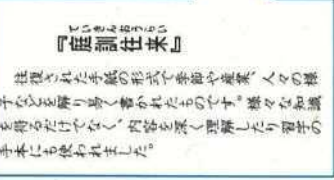 ていきんおうらい
『庭訓往来』
往復された手紙の形式で季節や産業、人々の様
子などを解り易く書かれたものです。様々な知識
を得るだけでなく、内容を深く理解したり習字の
手本にも使われました。